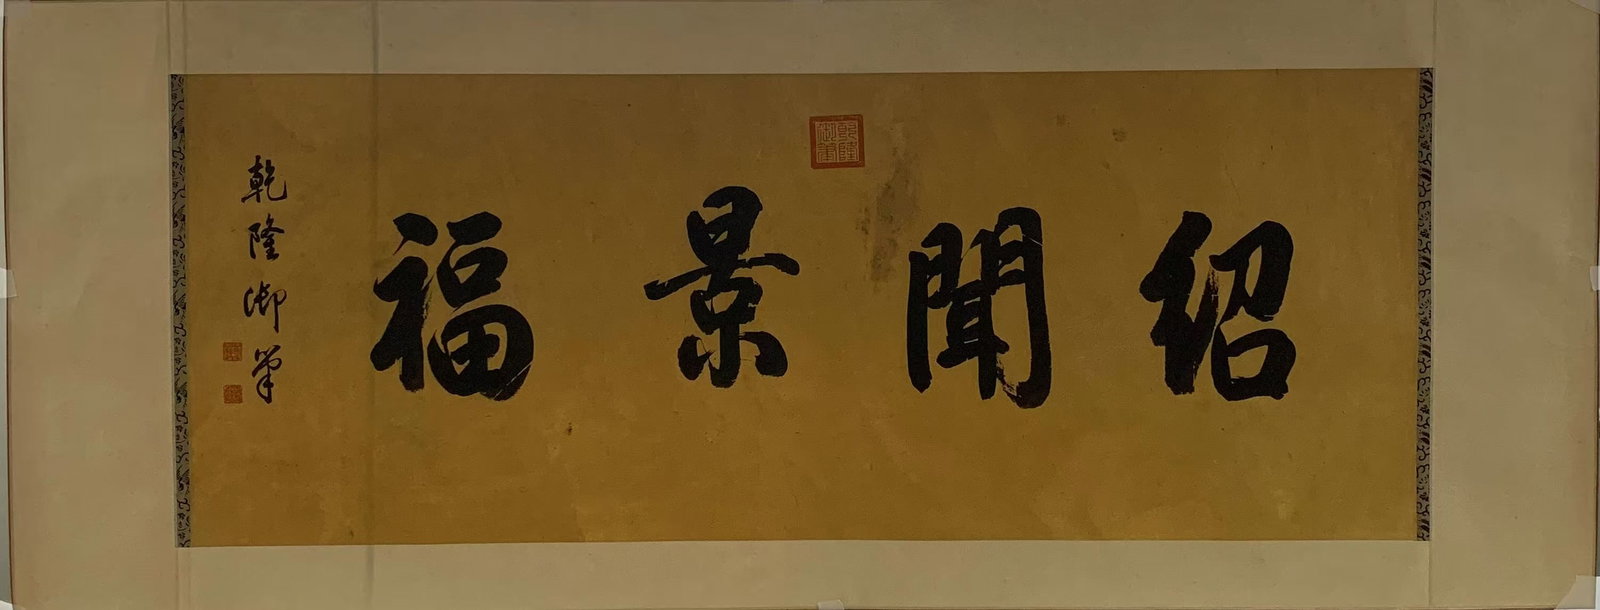 紹聞景福
乾隆御筆
乾隆御筆